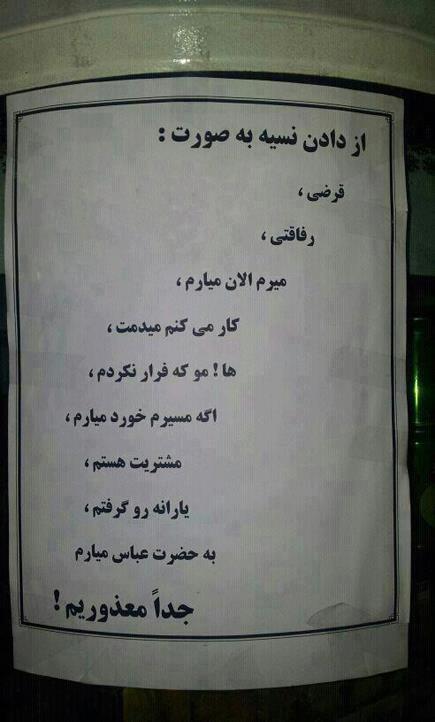 از دادن نسیه به صورت :
قرضی ،
رفاقتی ،
میرم الان میارم ،
کار می کنم میدمت ،
ها ! مو که فرار نکردم ،
اگه مسیرم خورد میارم ،
مشتریت هستم ،
یارانه رو گرفتم ،
به حضرت عباس میارم
جداً معذوریم !